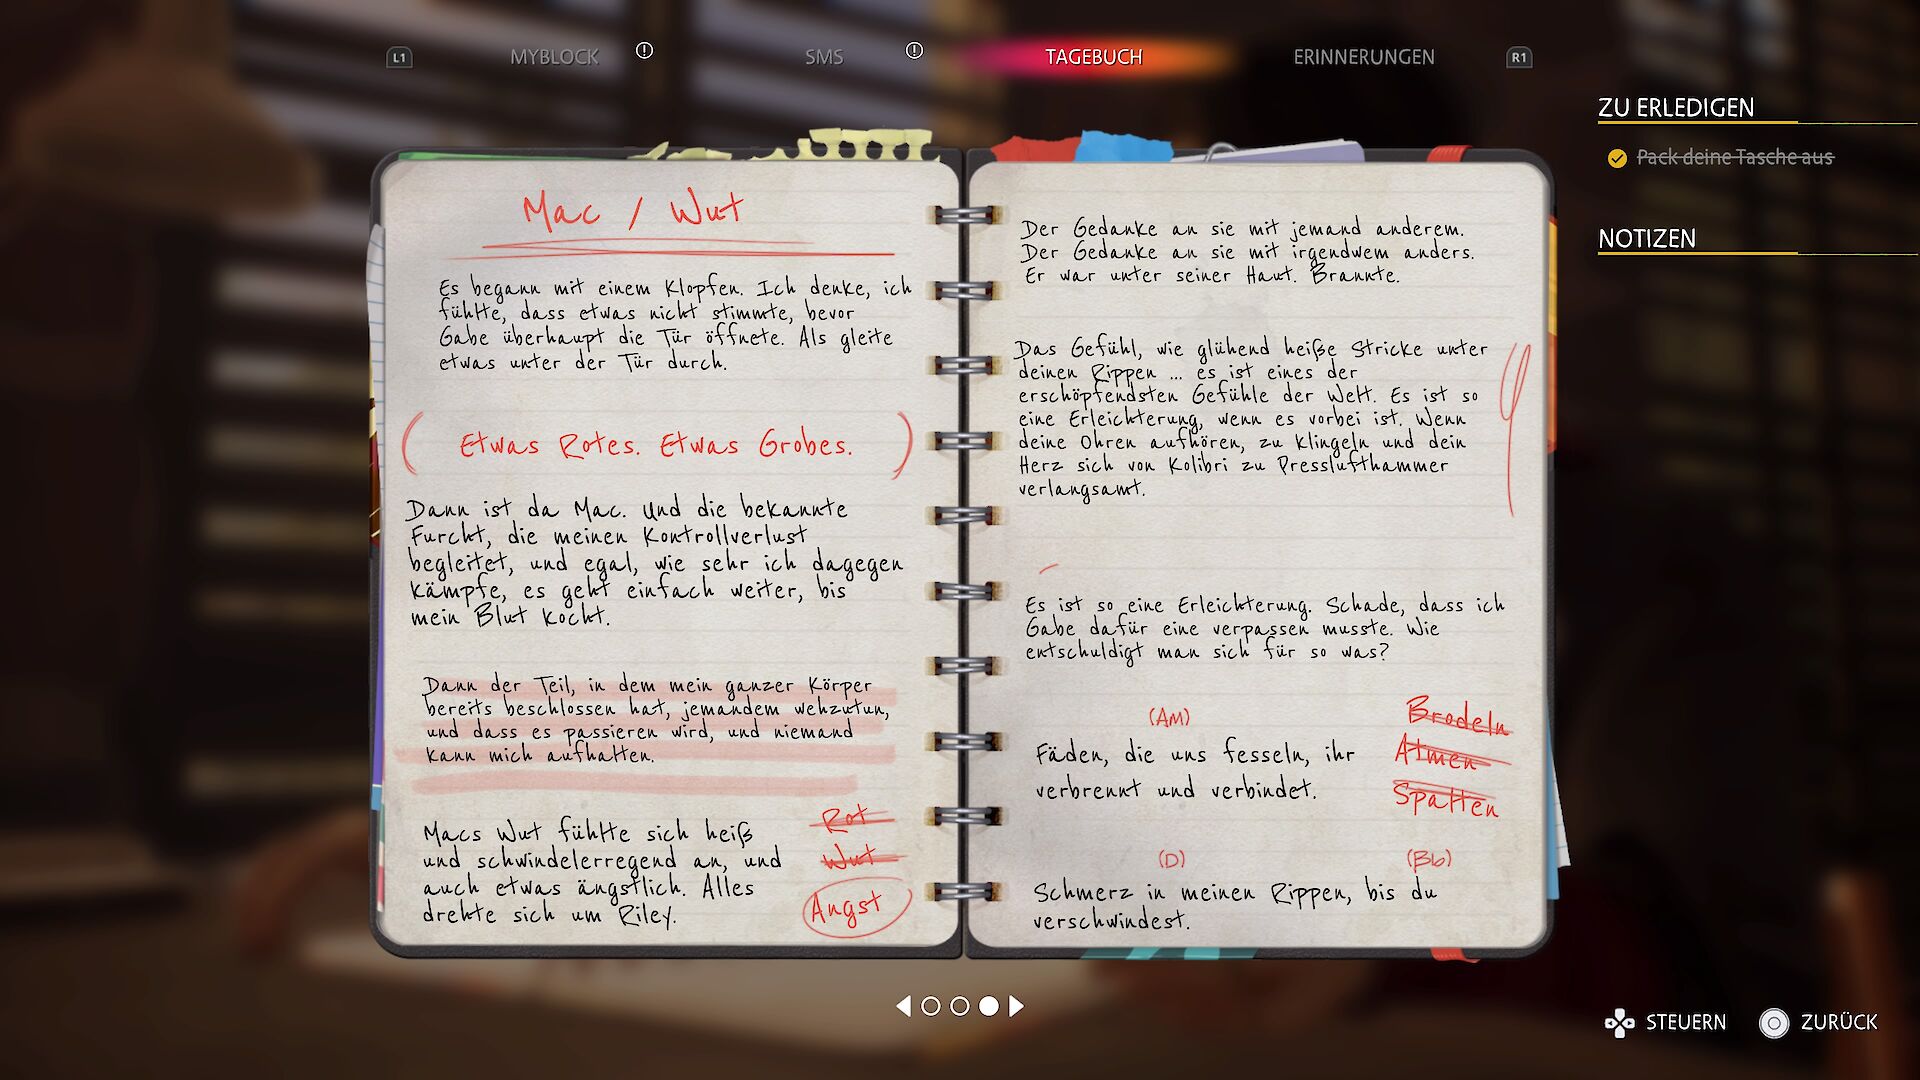 L1
MYBLOCK
SMS
TAGEBUCH
ERINNERUNGEN
R1
ZU ERLEDIGEN
Pack deine Tasche aus
NOTIZEN
Mac / Wut
Es begann mit einem Klopfen. Ich denke, ich
fühlte, dass etwas nicht stimmte, bevor
Gabe überhaupt die Tür öffnete. Als gleite
etwas unter der Tür durch.
( Etwas Rotes. Etwas Grobes. )
Dann ist da Mac. Und die bekannte
Furcht, die meinen Kontrollverlust
begleitet, und egal, wie sehr ich dagegen
kämpfe, es geht einfach weiter, bis
mein Blut kocht.
Dann der Teil, in dem mein ganzer Körper
bereits beschlossen hat, jemandem wehzutun,
und dass es passieren wird, und niemand
kann mich aufhalten.
Macs Wut fühlte sich heiß
und schwindelerregend an, und
auch etwas ängstlich. Alles
drehte sich um Riley.
Rot
Wut
Angst
Der Gedanke an sie mit jemand anderem.
Der Gedanke an sie mit irgendwem anders.
Er war unter seiner Haut. Brannte.
Das Gefühl, wie glühend heiße Stricke unter
deinen Rippen ... es ist eines der
erschöpfendsten Gefühle der Welt. Es ist so
eine Erleichterung, wenn es vorbei ist. Wenn
deine Ohren aufhören, zu klingeln und dein
Herz sich von Kolibri zu Presslufthammer
verlangsamt.
Es ist so eine Erleichterung. Schade, dass ich
Gabe dafür eine verpassen musste. Wie
entschuldigt man sich für so was?
(Am)
Fäden, die uns fesseln, ihr
verbrennt und verbindet.
Brodeln
Atmen
Spalten
(D)
(Bb)
Schmerz in meinen Rippen, bis du
verschwindest.
STEUERN
ZURÜCK